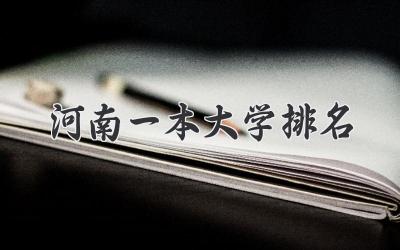 河南一本大学排名